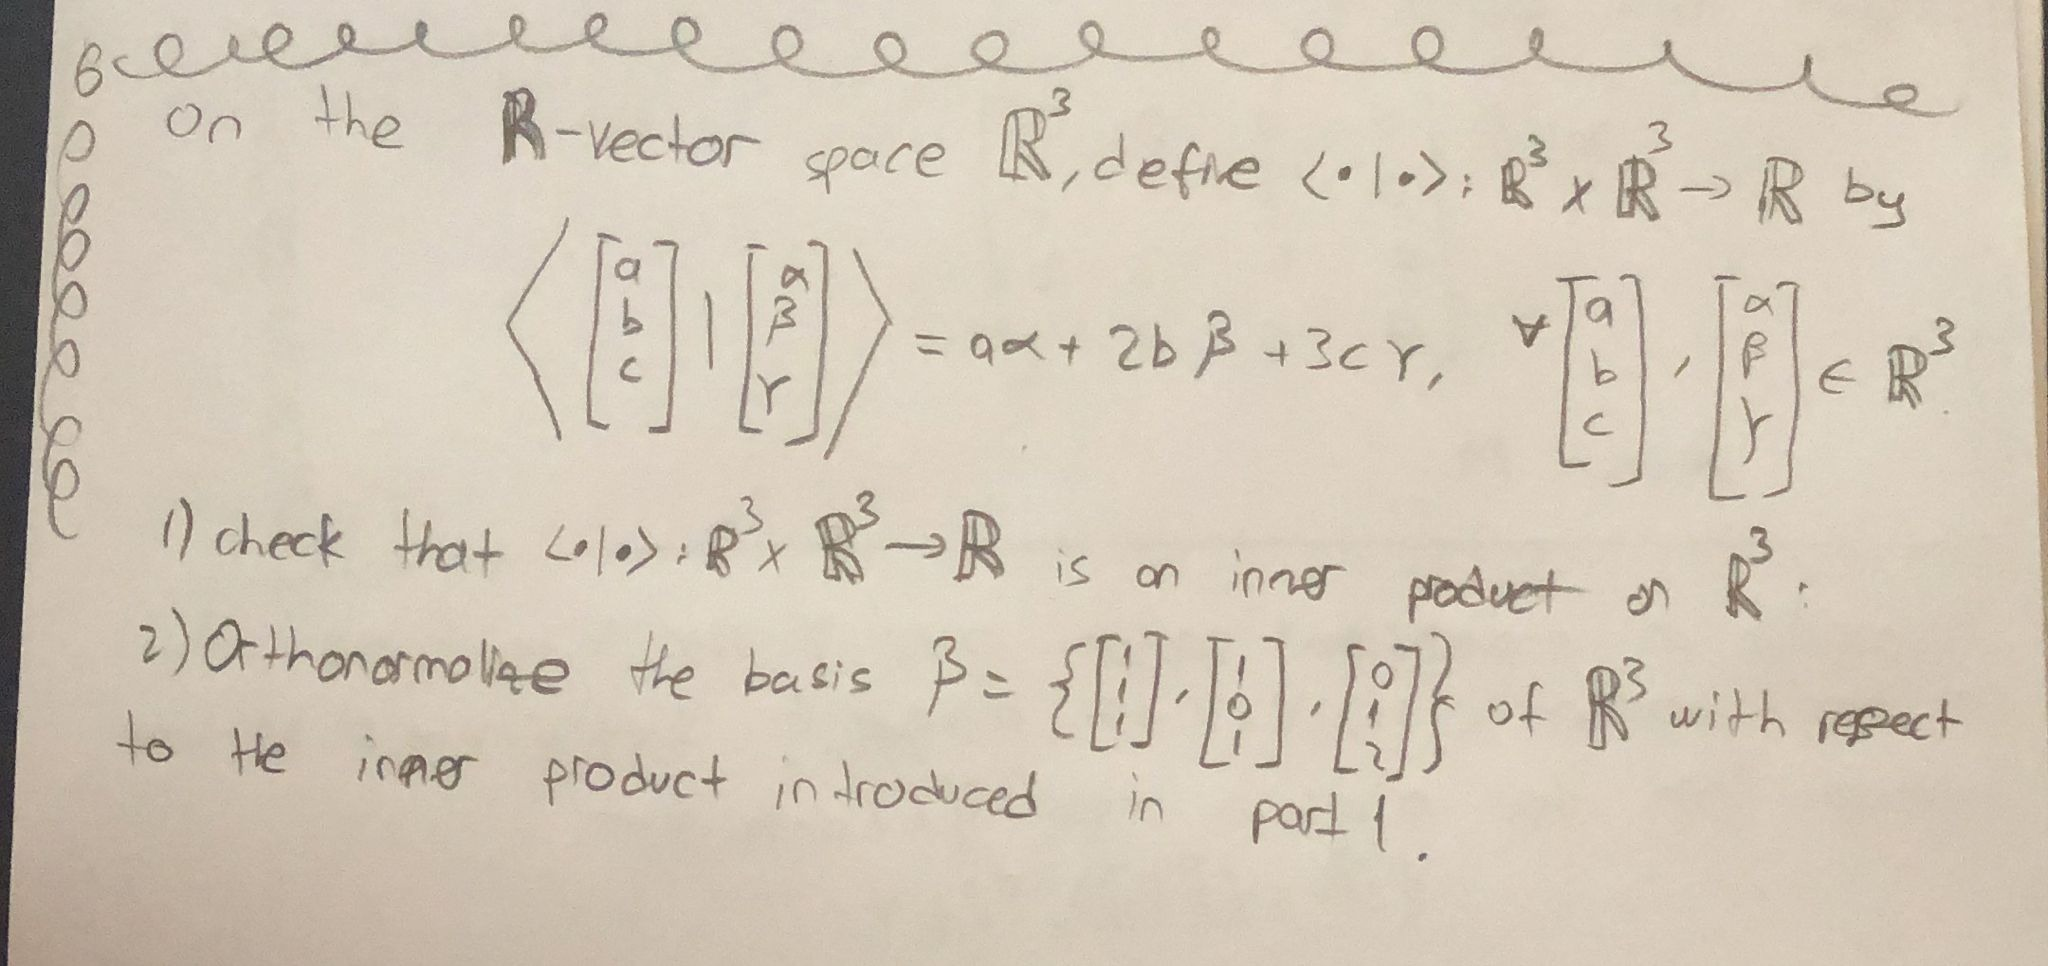 On the ℝ-vector space ℝ³, define <•|•>: ℝ³ x ℝ³ → ℝ by
⟨[a b c] | [α β γ]⟩ = aα + 2bβ + 3cγ, ∀ [a b c], [α β γ] ∈ ℝ³.
1) check that <•|•>: ℝ³ x ℝ³ → ℝ is an inner product on ℝ³.
2) Orthonormalize the basis β = {[1 1 1], [1 0 1], [0 1 2]} of ℝ³ with respect
to the inner product introduced in part 1.